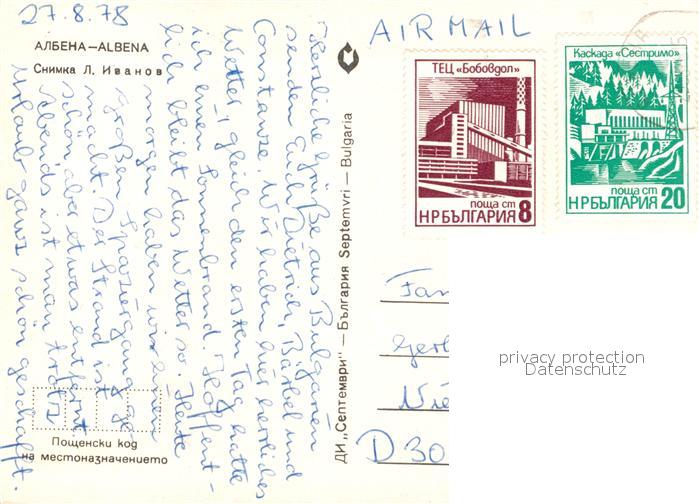 27.8.78
AIR MAIL
АЛБЕНА—ALBENA
Снимка Л. Иванов
Herzliche Grüße aus Bulgarien
senden Euch Dietrich, Bärbel und
Constanze. Wir haben hier herrliches
Wetter, gleich den ersten Tag hatte
ich einen Sonnenbrand. Hoffent-
lich bleibt das Wetter so. Heute
morgen haben wir einen
großen Spaziergang ge-
macht. Der Strand ist
schön, aber etwas entfernt.
Abends ist man trotz
Urlaub ganz schön geschafft.
Пощенски код
на местоназначението
ДИ „Септември" — България Septemvri — Bulgaria
ТЕЦ «Бобовдол»
поща ст
НРБЪЛГАРИЯ 8
Каскада «Сестримо»
поща ст
НРБЪЛГАРИЯ 20
Fam
Gerl
Nie
D 30
privacy protection
Datenschutz